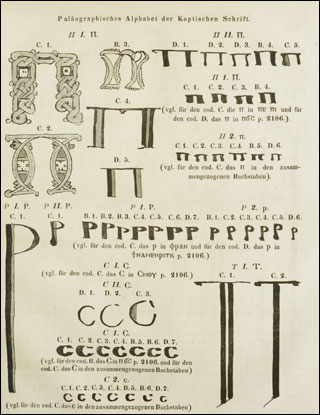 Paläographisches Alphabet der Koptischen Schrift.
Π I. Π. Π II. Π.
C. 1. B. 3. D. 1. D. 2. D. 3. B. 4. C. 5.
Π 1. Π.
C. 4. C. 1. C. 2. C. 3. B. 4.
(vgl. für den cod. C. die п in пє m und für
den cod. D. das п in p. 2106.)
C. 2. Π 2. п.
C. 1. C. 2. C. 3. C. 4. B. 5. D. 6.
D. 5. (vgl. für den cod. C. das п in den zusam-
mengezogenen Buchstaben).
P I. P. P II. P. P 1. P. P 2. p.
C. 1. C. 1. B. 1. B. 2. B. 3. C. 4. C. 5. C. 6. D. 7. B. 1. C. 2. C. 3. C. 4. C. 5. D. 6.
(vgl. für den cod. C. das p in ϥⲣⲁⲛ und für den cod. D. das p in
p. 2106.)
C I. C. T I. T.
(vgl. für den cod. C. das C in p. 2106.) C. 1. C. 2.
C II. C.
D. 1. D. 2. C. 3.
C C C
C 1. C.
C. 1. C. 2. C. 3. C. 4. B. 5. B. 6. D. 7.
C C C C C C C
(vgl. für den cod. B. das C in p. 2106. und für den
cod. C. das C in den zusammengezogenen Buchstaben)
C 2. c.
C. 1. C. 2. C. 3. C. 4. B. 5. B. 6. D. 7.
c c c c c c c
(vgl. für den cod. C. das c in den zusammengezogenen Buchstaben)